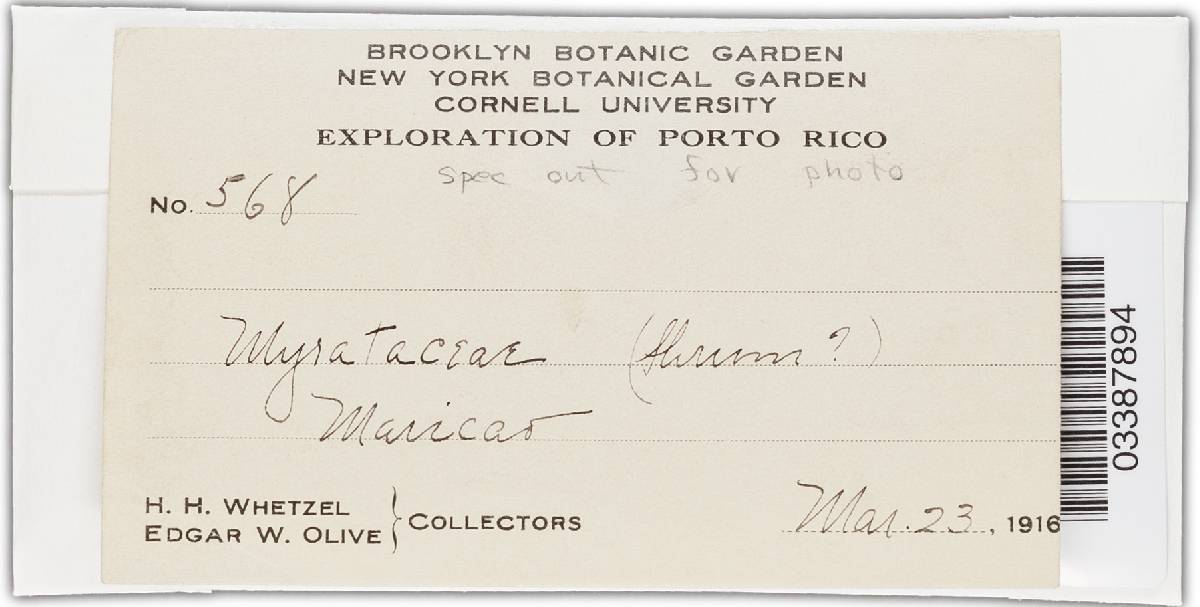 BROOKLYN BOTANIC GARDEN
NEW YORK BOTANICAL GARDEN
CORNELL UNIVERSITY
EXPLORATION OF PORTO RICO
spec out for photo
No. 568
Myrataceae
Maricao
H. H. WHETZEL
EDGAR W. OLIVE } COLLECTORS
Mar. 23, 1916
03387894